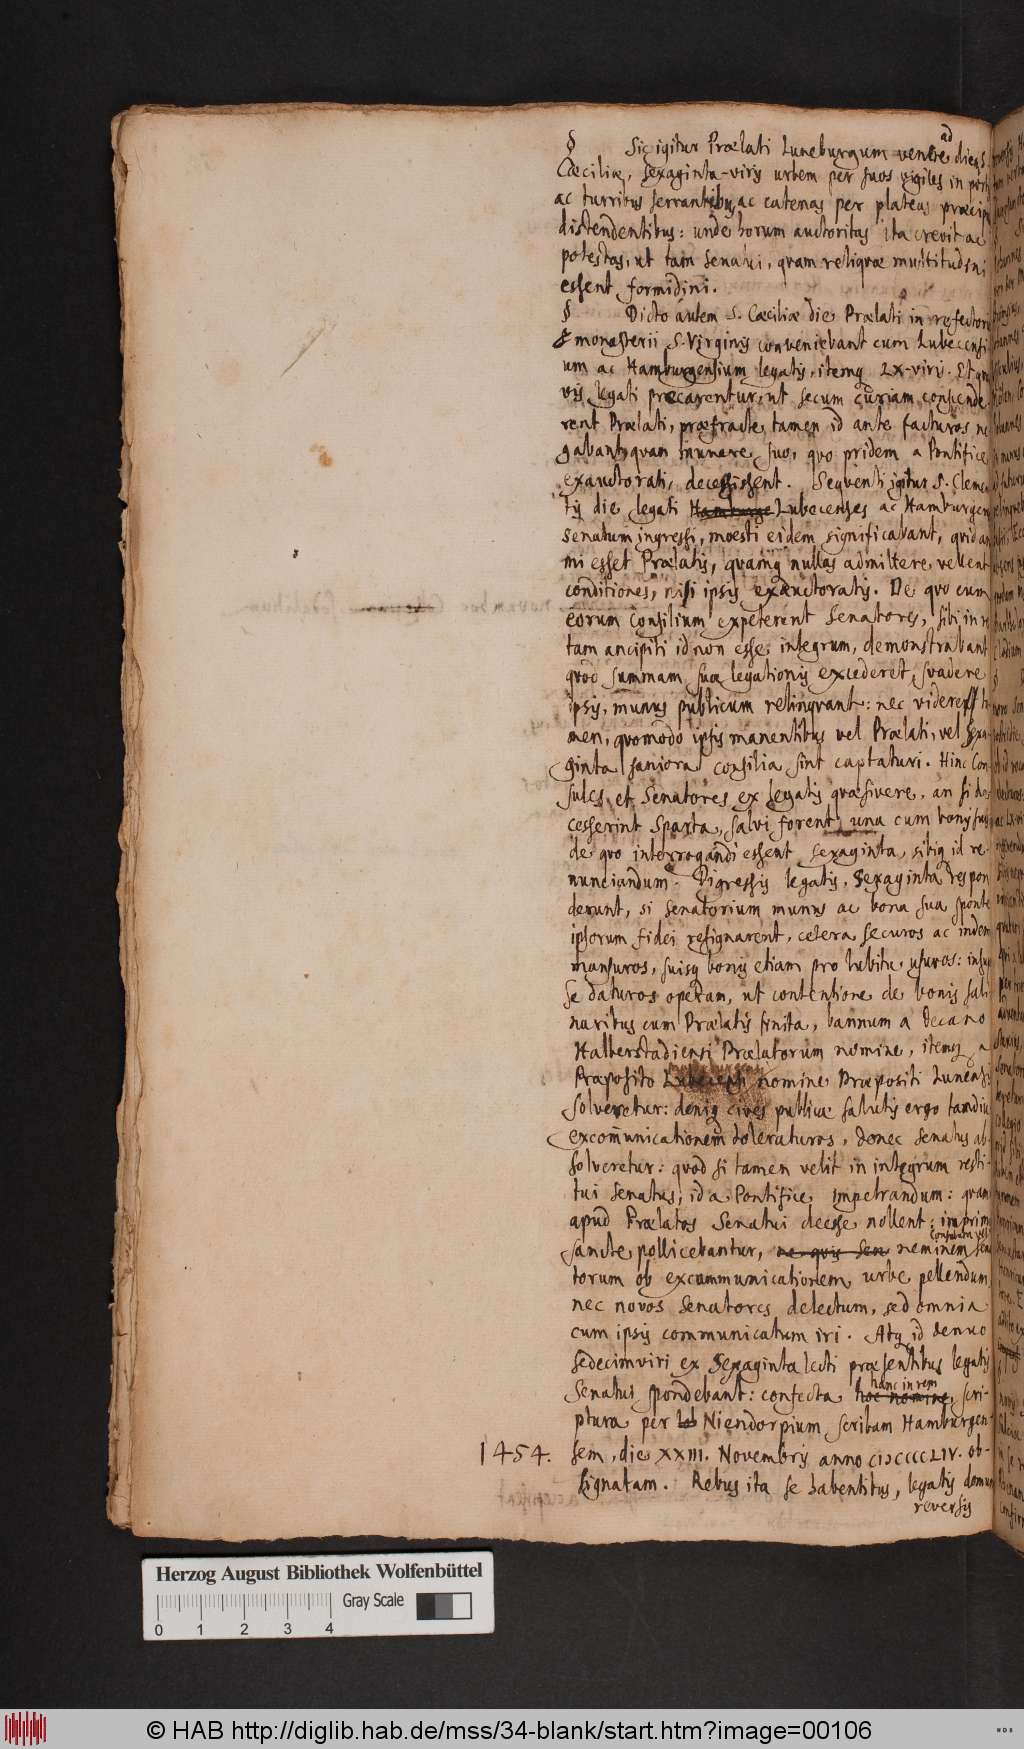 ad
§ Sic igitur Prælati Luneburgum venere diem S.
Cæciliæ, sexaginta-viris urbem per suos vigiles in portis
ac turribus serrantibus, ac catenas per plateas præcip
distendentibus: unde horum auctoritas ita crevit ac
potestas, ut tam senatui, quam reliquæ multitudini
essent formidini.
§ Dicto autem S. Cæciliæ die Prælati in refectori
monasterii S. Virginis conveniebant cum Lubecensi
um ac Hamburgensium legatis, itemq LX-viri. Et qm
vis legati precarentur, ut secum curiam conscende
rent Prælati, præfracte tamen id ante facturos ne
gabant, quam munare suo, quo pridem a Pontifice
exauctorati, decessissent. Sequenti igitur S. Clemen
tis die legati Hamburge Lubecenses ac Hamburgen
senatum ingressi, moesti eidem significabant, quid an
mi esset Prælatis, quamq nullas admittere vellent
conditiones, nisi ipsis exauctoratis. De quo cum
eorum consilium expeterent Senatores, sibi in re
tam ancipiti id non esse integrum, demonstrabant
quod summam suæ legationis excederet, svadere
ipsis, munus publicum relinqvant: nec videre se ta
men, quomodo ipsis manentibus vel Prælati, vel Sexa
ginta saniora consilia sint captaturi. Hinc Con
sules et Senatores ex legatis quæsivere, an si de
cesserint Sparta, salvi forent una cum bonis suis
de quo interrogandi essent sexaginta, sibiq id re
nunciandum. Digressis legatis, Sexaginta respon
derunt, si senatorium munus ac bona sua sponte
ipsorum fidei resignarent, cetera securos ac indem
mansuros, suisq bonis etiam pro lubitu usuros: insup
se daturos operam, ut contentione de bonis sali
naribus cum Prælatis finita, bannum a Decano
Halberstadiensi Prælatorum nomine, itemq a
Præposito Lubecensi nomine Præpositi Lunensis
solveretur: deniq cives publicæ salutis ergo tamdiu
excomunicationem toleraturos, donec senatus ab
solveretur: quod si tamen velit in integrum resti-
tui senatus, id a Pontifice impetrandum: quam
apud Prælatos Senatui deesse nollent: imprim
sancte pollicebantur, ne quis sen neminem sena
torum ob excommunicationem urbe pellendum
nec novos senatores delectum, sed omnia
cum ipsis communicatum iri. Atq id denuo
sedecimviri ex Sexaginta lecti præsentibus legatis
hanc in rem
Senatui spondebant: confecta hoc nomine, scri-
ptura per Niendorpium, scribam Hamburgen-
1454. sem, die XXIII. Novembris anno CIƆCCCCLIV. ob-
signatam. Rebus ita se habentibus, legatis domum
reversis
Herzog August Bibliothek Wolfenbüttel
Gray Scale
0 1 2 3 4
© HAB http://diglib.hab.de/mss/34-blank/start.htm?image=00106